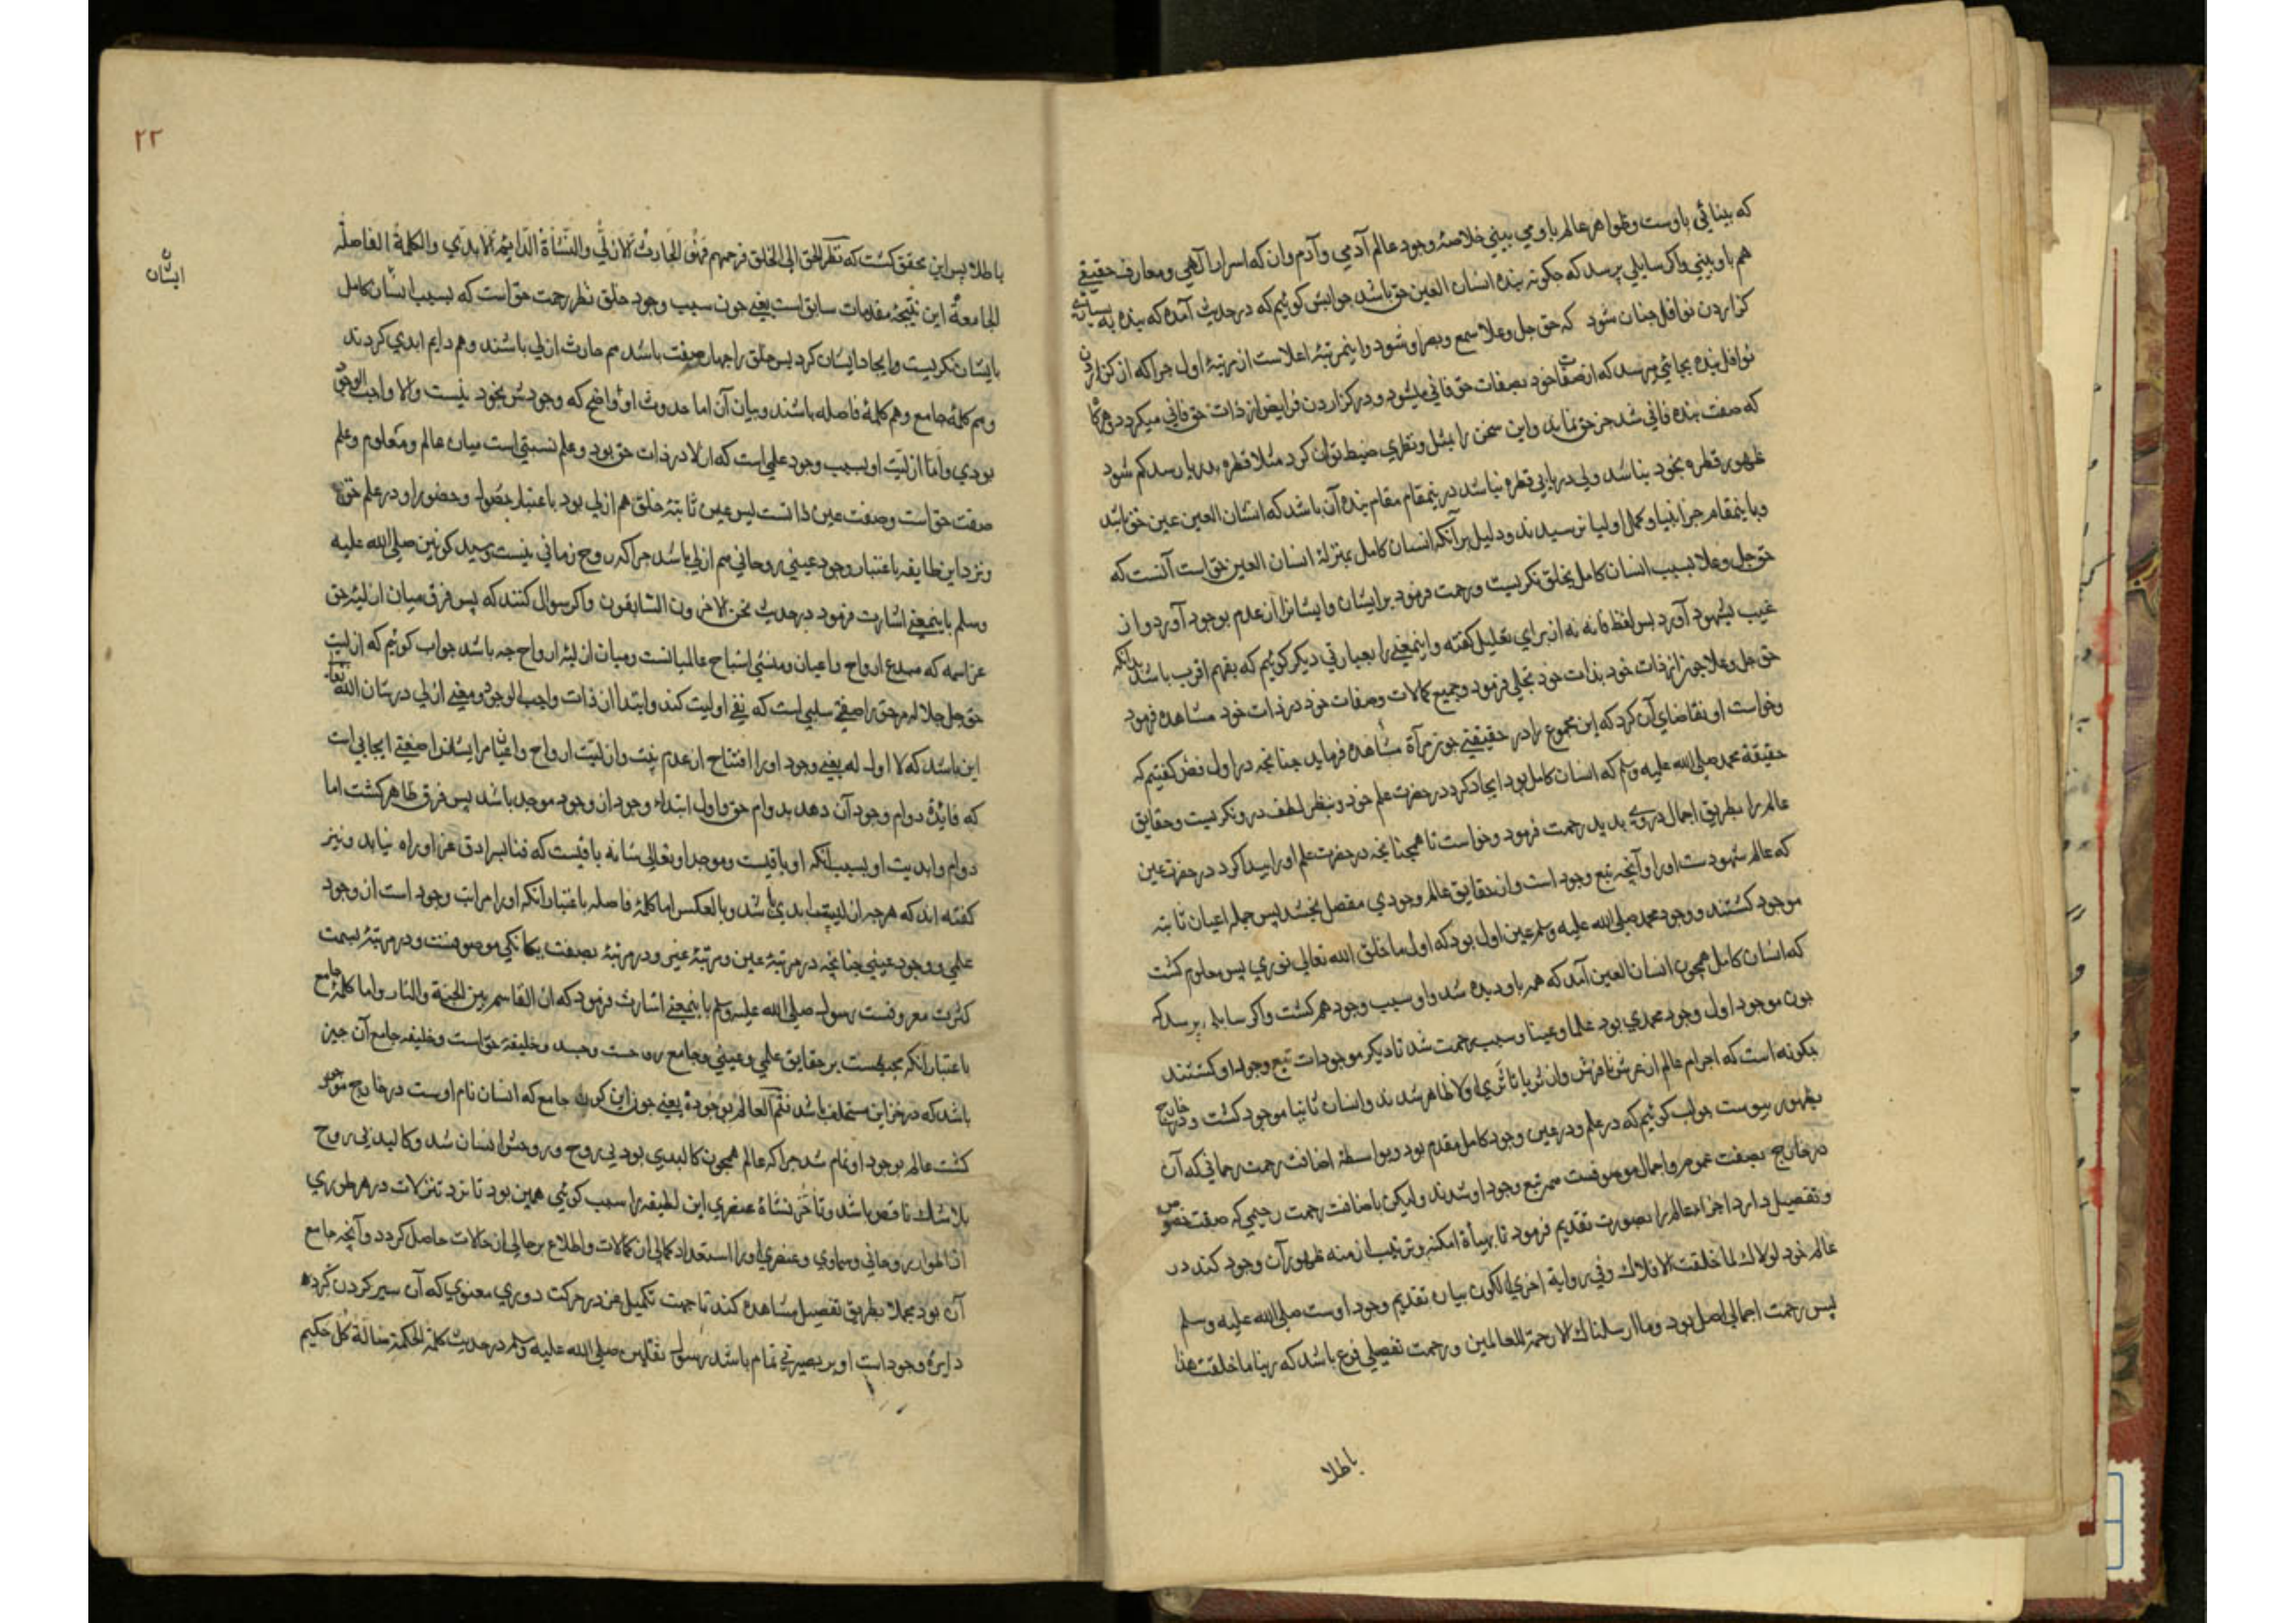 که بینائی باوست وظواهر عالم باو می بینی خلاصهٔ وجود عالم آدمی وآدم وان که اسرار آلهی ومعارف حقیقی
هم باو بینی واکر سایلی پرسد که چکونه بنده انسان العین حق باشد جوابش کوئیم که درحدیث آمده که بنده به
کزاردن نوافل چنان شود که حق جل وعلا سمع وبصر او شود واینمرتبهٔ اعلاست از مرتبهٔ اول چراکه از کزاردن
نوافل بنده بجائی میرسد که از صفات خود بصفات حق فانی میشود ودر کزاردن فرایض از ذات حق فانی میکردد وهرکا
که صفت بنده فانی شد جز حق نماند واین سخن را بمثل ونظری ضبط توان کرد مثلا قطره بدریا رسد کم شود
ظهور قطره بخود نباشد ولی دریا بی قطره نباشد درینمقام مقام بنده آن باشد که انسان العین عین حق باشد
وباینمقام جز انبیا وکمل اولیا نرسیدند ودلیل برآنکه انسان کامل بمنزلهٔ انسان العین حق است آنست که
حق جل وعلا بسبب انسان کامل بخلق نکریست ورحمت فرمود برایشان وایشانرا از عدم بوجود آورد واز
غیب بشهود آورد پس لفظ فانه نه از برای تعلیل کفته واینمعنی را بعبارتی دیکر کوئیم که بفهم اقرب باشد بدانکه
حق جل وعلا چون از ذات خود بذات خود تجلی فرمود وجمیع کمالات وصفات خود در ذات خود مشاهده فرمود
وخواست او تقاضای آن کرد که این مجموع را در حقیقتی چون مرآة مشاهده فرماید چنانچه در اول فص کفتیم که
حقیقة محمد صلی الله علیه وسلم که انسان کامل بود ایجاد کرد در حضرت علم خود وبنظر لطف درو نکریست وحقایق
عالم را بطریق اجمال در وی بدید رحمت فرمود وخواست تا همچنانچه در حضرت علم اورا پیدا کرد در حضرت عین
که عالم شهودست اورا وآنچه تبع وجود است وان حقایق عالم وجودی مفصل بخشد پس جمله اعیان ثابته
موجود کشتند ووجود محمد صلی الله علیه وسلم عین اول بود که اول ما خلق الله تعالی نوری پس معلوم کشت
که انسان کامل همچون انسان العین آمد که همه باو دیده شد واو سبب وجود همه کشت واکر سایلی پرسد که
چون موجود اول وجود محمدی بود علما وعینا وسبب رحمت شد تا دیکر موجودات تبع وجود او کشتند
چکونه است که اجرام عالم از عرش تا فرش وان ثریا تا ثری اولا ظاهر شدند وانسان ثانیا موجود کشت ودر خارج
بظهور پیوست جواب کوئیم که در علم ودر عین وجود کامل مقدم بود وبواسطهٔ اضافت رحمت رحمانی که آن
در خارج بصفت عموم واجمال موصوفست همه تبع وجود او شدند ولیکن باضافت رحمت رحیمی که صفت خصوص
وتفصیل دارد اجزاء عالم را بصورت تقدیم فرمود تا بهیأة امکنه وترتیب ازمنه ظهور آن وجود کند در
عالم خود لولاک لما خلقت الافلاک وفی روایة اخری الکون بیان تقدیم وجود اوست صلی الله علیه وسلم
پس رحمت اجمالی اصل بود وما ارسلناک الا رحمة للعالمین ورحمت تفصیلی فرع باشد که ربنا ما خلقت هذا
باطلا
۲۲
باطلا پس این محقق کشت که نظر الحق الی الخلق فرحمهم فهو الحادث الازلی والنشأة الدایم الابدی والکلمة الفاصلة
ایشان
الجامعة این نتیجهٔ مقدمات سابق است یعنی چون سبب وجود خلق نظر رحمت حق است که بسبب انسان کامل
بایشان نکریست وایجاد ایشان کرد پس خلق را جهار صفت باشد هم حادث ازلی باشند وهم دایم ابدی کردند
وهم کلمهٔ جامع وهم کلمهٔ فاصله باشند وبیان آن اما حدوث او واضح که وجودش بخود نیست والا واجب الوجود
بودی واما ازلیت او بسبب وجود علمی است که ازلا در ذات حق بود وعلم نسبتی است میان عالم ومعلوم وعلم
صفت حق است وصفت عین ذاتست پس عین ثابتهٔ خلق هم ازلی بود باعتبار حصول وحضور او در علم حق
ونزد این طایفه باعتبار وجود عینی روحانی هم ازلی باشد چراکه روح زمانی نیست وسید کونین صلی الله علیه
وسلم باینمعنی اشارت فرمود در حدیث نحن الاخرون السابقون واکر سوال کنند که پس فرق میان ازلیت حق
عز اسمه که مبدع ارواح واعیان ومنشی اشباح عالمیانست ومیان ازلیت ارواح چه باشد جواب کوئیم که ازلیت
حق جل جلاله مر حق را صفتی سلبی است که نفی اولیت کند وابتدا از ذات واجب الوجود ومعنی ازلی در شان الله تعالی
این باشد که لا اول له یعنی وجود اورا افتتاح از عدم نیست وازلیت ارواح واعیان مر ایشانرا صفتی ایجابی است
که فایدهٔ دوام وجود آن دهد بدوام حق واول ابتداء وجود از وجود موجد باشد پس فرق ظاهر کشت اما
دوام وابدیت او بسبب آنکه او باقیست وموجد او تعالی شانه باقیست که فنا بسرادق عز او راه نیابد ونیز
کفته اند که هرچه ازلیست ابدی باشد وبالعکس اما کلمهٔ فاصله باعتبار آنکه اورا مراتب وجود است از وجود
علمی ووجود عینی چنانچه در مرتبهٔ عین ومرتبهٔ غیر ودر مرتبهٔ بصفت یکانکی موصوفست ودر مرتبهٔ بسمت
کثرت معروفست رسول صلی الله علیه وسلم باینمعنی اشارت فرمود که انا القاسم بین الجنة والنار واما کلمهٔ جامع
باعتبار آنکه محیطست بر حقایق علمی وعینی وجامع روحست وجسد وخلیفهٔ حق است وخلیفه جامع آن چیز
باشد که در خزاین مستخلف باشد فتم العالم بوجوده یعنی چون این کون جامع که انسان نام اوست در خارج موجود
کشت عالم بوجود او تمام شد چراکه عالم همچون کالبدی بود بی روح وروحش انسان شد وکالبد بی روح
بلا شک ناقص باشد وتاخر نشاة عنصری این لطیفه را سبب کوئی همین بود تا نزد تنزلات در هر طوری
از اطوار روحانی وسماوی وعنصری اورا استعداد کمالی از کمالات واطلاع بر حالی از حالات حاصل کردد وآنچه جامع
آن بود مجملا بطریق تفصیل مشاهده کند تا جهت تکمیل غیر در حرکت دوری معنوی که آن سیر کردن کرد
دایرهٔ وجود است او بر بصیرتی تمام باشد رسول ثقلین صلی الله علیه وسلم در حدیث کلمة الحکمة ضالة کل حکیم